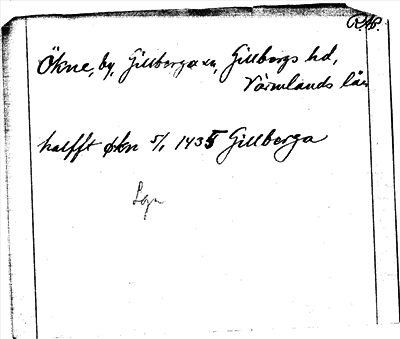 R.A.P.
Ökne, by, Gillberga sn, Gillbergs hd,
Värmlands län
halfft økn 5/1 1435 Gillberga